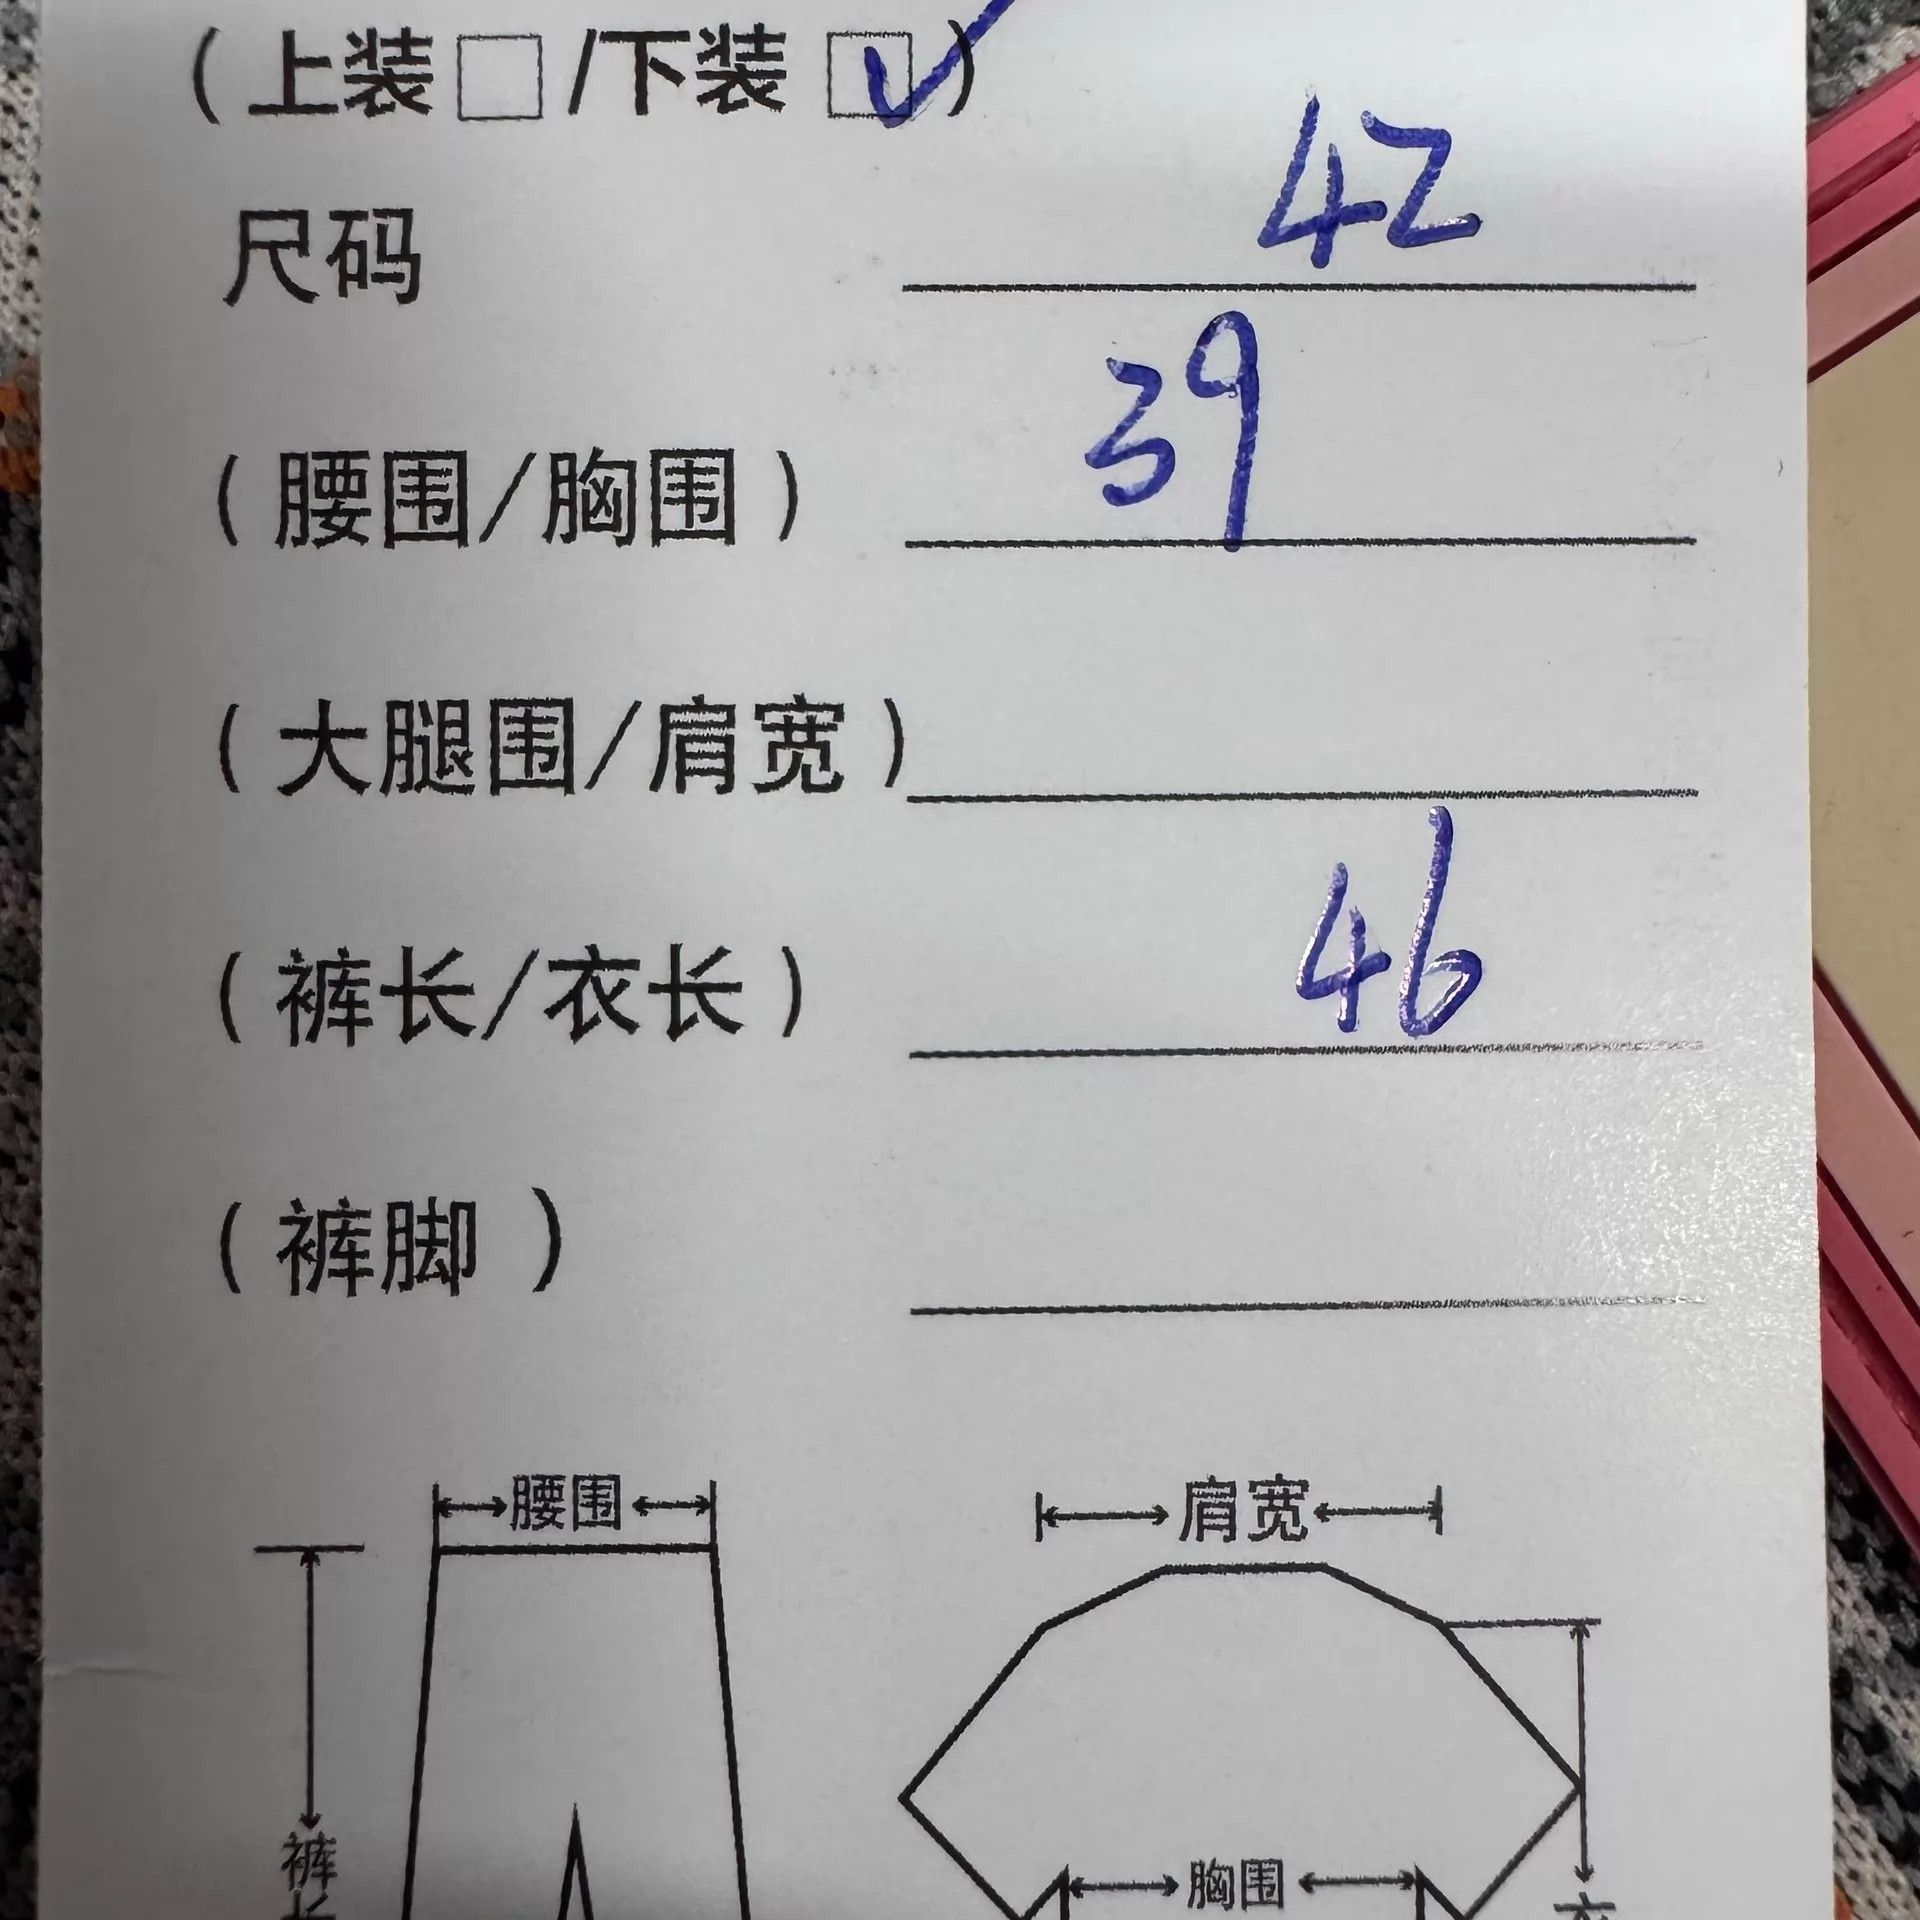 （上装□/下装☑）
尺码 42
（腰围/胸围） 39
（大腿围/肩宽）
（裤长/衣长） 46
（裤脚 ）
腰围 肩宽
裤
胸围